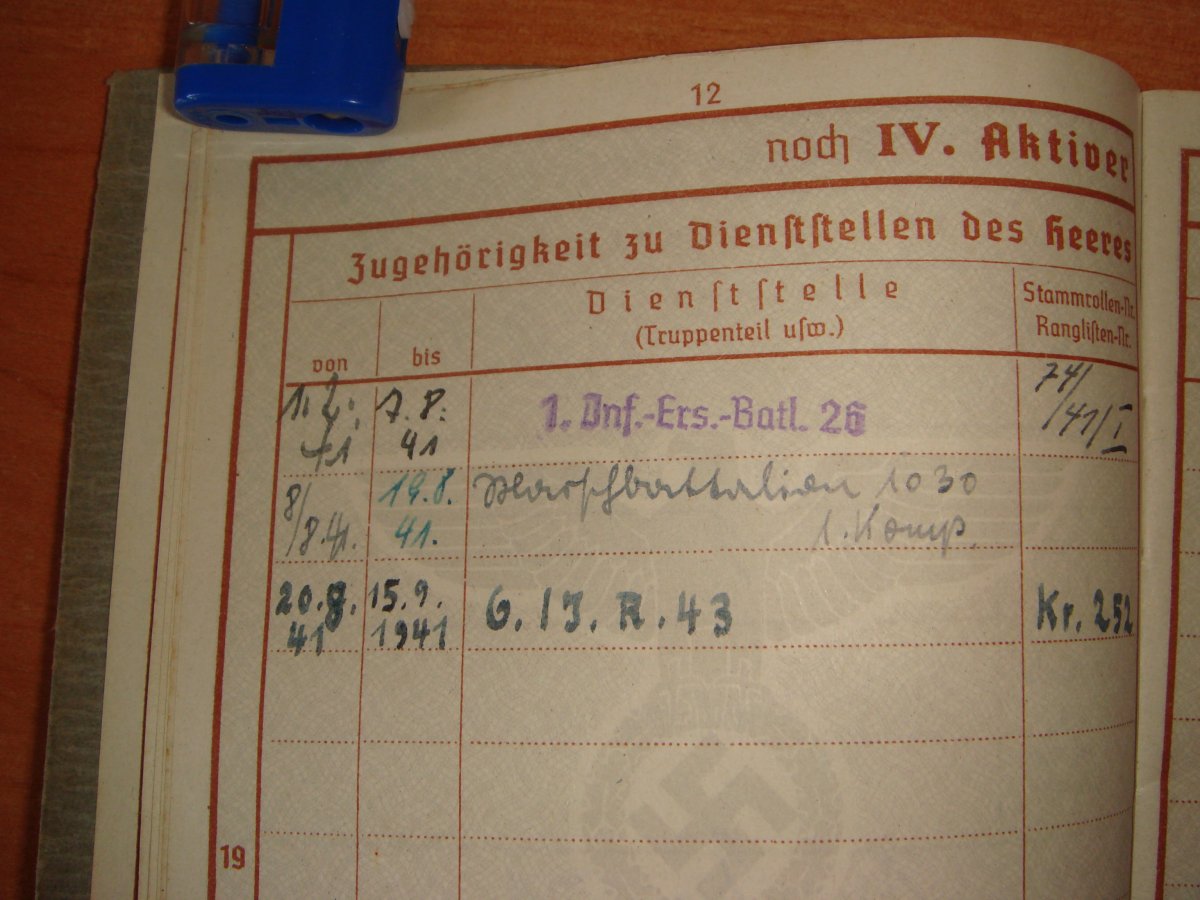 12
noch IV. Aktiver
Zugehörigkeit zu Dienststellen des Heeres
von
bis
Dienststelle
(Truppenteil usw.)
Stammrollen-Nr.
Ranglisten-Nr.
1. 2. 41
7. 8. 41
1. Inf.-Ers.-Batl. 26
74/
/41/I
8/
/8.41.
19.8.
41.
Marschbattalion 1030
1. Komp.
20.8.
41
15.9.
1941
6./J.R.43
Kr. 252
19